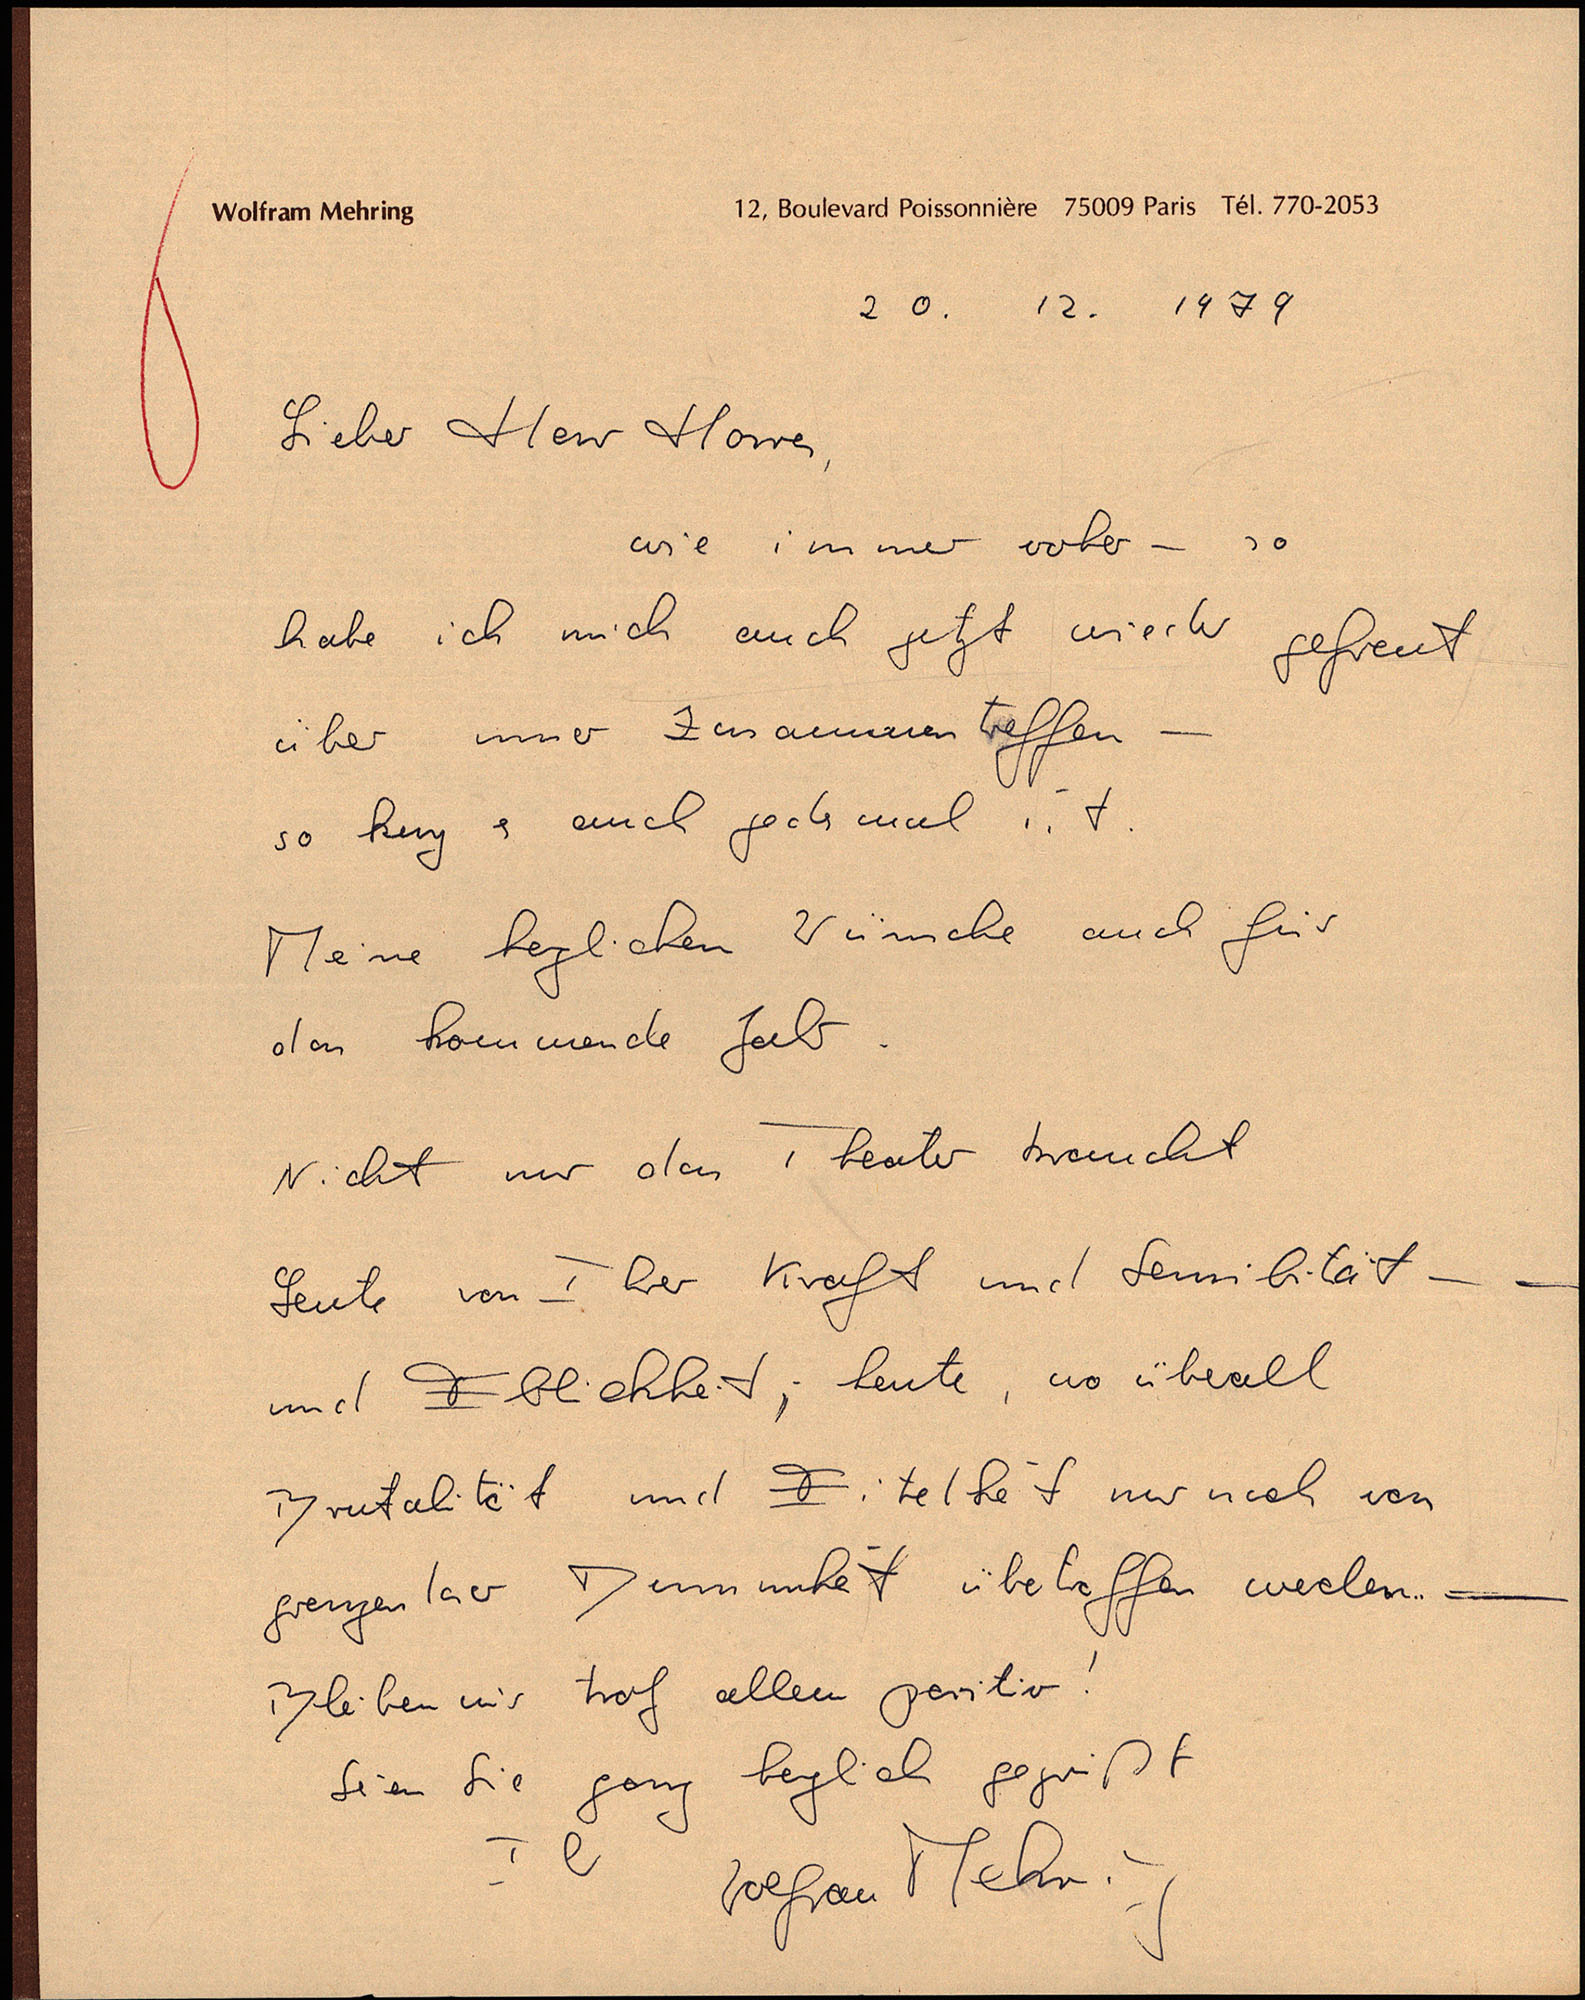 Wolfram Mehring
12, Boulevard Poissonnière 75009 Paris Tél. 770-2053
20. 12. 1979
Lieber Herr
wie immer vorher – so
habe ich mich auch jetzt wieder gefreut
über unser Zusammentreffen –
so kurz es auch jedesmal ist.
Meine herzlichen Wünsche auch für
das kommende Jahr.
Nicht nur das Theater braucht
Leute von Ihrer Kraft und Sensibilität –
und ; heute, wo überall
Brutalität und Eitelkeit nur noch von
grenzenloser Dummheit übertroffen werden.. —
Bleiben wir trotz allem positiv!
Seien Sie ganz herzlich gegrüßt
Ihr Wolfram Mehring